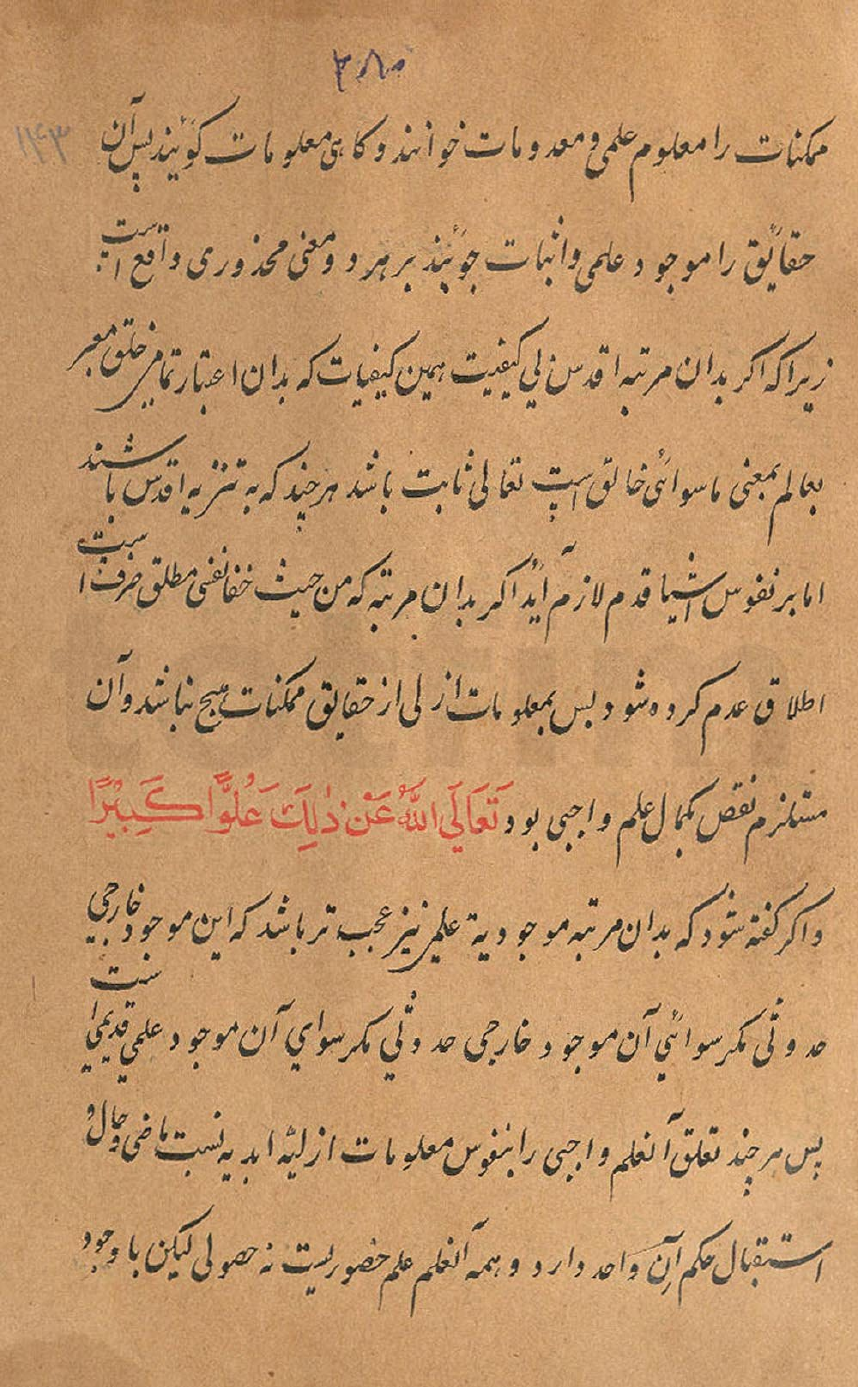 ۱۴۳
ممکنات را معلوم علمی و معدومات خوانند و کاهی معلومات کویند پس آن
حقایق را موجود علمی و اثبات جویند بر هر دو معنی محذوری واقع است
زیرا که اکر بدان مرتبه اقدس بی کیفیت همین کیفیات که بدان اعتبار تمامی خلق معبر
بعالم بمعنی ما سوائی خالق است تعالی ثابت باشد هر چند که به تنزیه اقدس باشند
اما بر نفوس اشیا قدم لازم آید اکر بدان مرتبه که من حیث خفا نفسی مطلق صرف است
اطلاق عدم کرده شود پس بمعلومات ازلی از حقایق ممکنات هیج نباشد و آن
مستلزم نقص بکمال علم واجبی بود تَعَالَی اللّٰهُ عَنْ ذٰلِكَ عُلُوًّا كَبِيْرًا
و اکر کفته شود که بدان مرتبه موجودیة علمی نیز عجب تر باشد که این موجود خارجی
حدوثی مکر سوائی آن موجود خارجی حدوثی مکر سوای آن موجود علمی قدیمی است
پس هر چند تعلق آنعلم واجبی را بنفوس معلومات ازلیه ابدیه نسبت ماضی و حال و
استقبال حکم آن واحد دارد و همه آنعلم علم حضوریست نه حصولی لیکن با وجود